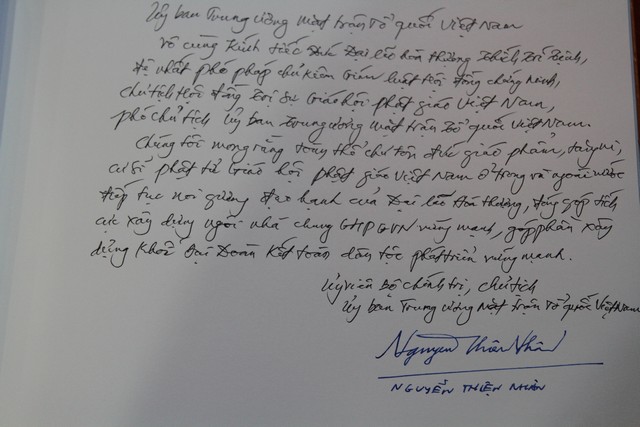 Ủy ban Trung ương mặt trận Tổ quốc Việt Nam
vô cùng kính tiếc Đức Đại lão hòa thượng Thích Trí Tịnh,
đệ nhất phó pháp chủ kiêm Giám luật Hội đồng chứng minh,
chủ tịch Hội đồng Trị sự Giáo hội phật giáo Việt Nam,
phó chủ tịch Ủy ban Trung ương mặt trận Tổ quốc Việt Nam.
Chúng tôi mong rằng toàn thể chư tôn đức giáo phẩm, tăng ni,
cư sĩ phật tử Giáo hội phật giáo Việt Nam ở trong và ngoài nước
tiếp tục noi gương đạo hạnh của Đại lão Hòa thượng, đóng góp tích
cực xây dựng ngôi nhà chung GHPGVN vững mạnh, góp phần xây
dựng khối Đại Đoàn kết toàn dân tộc phát triển vững mạnh.
Ủy viên Bộ chính trị, chủ tịch
Ủy ban Trung ương Mặt trận Tổ quốc Việt Nam
Nguyễn Thiện Nhân
NGUYỄN THIỆN NHÂN